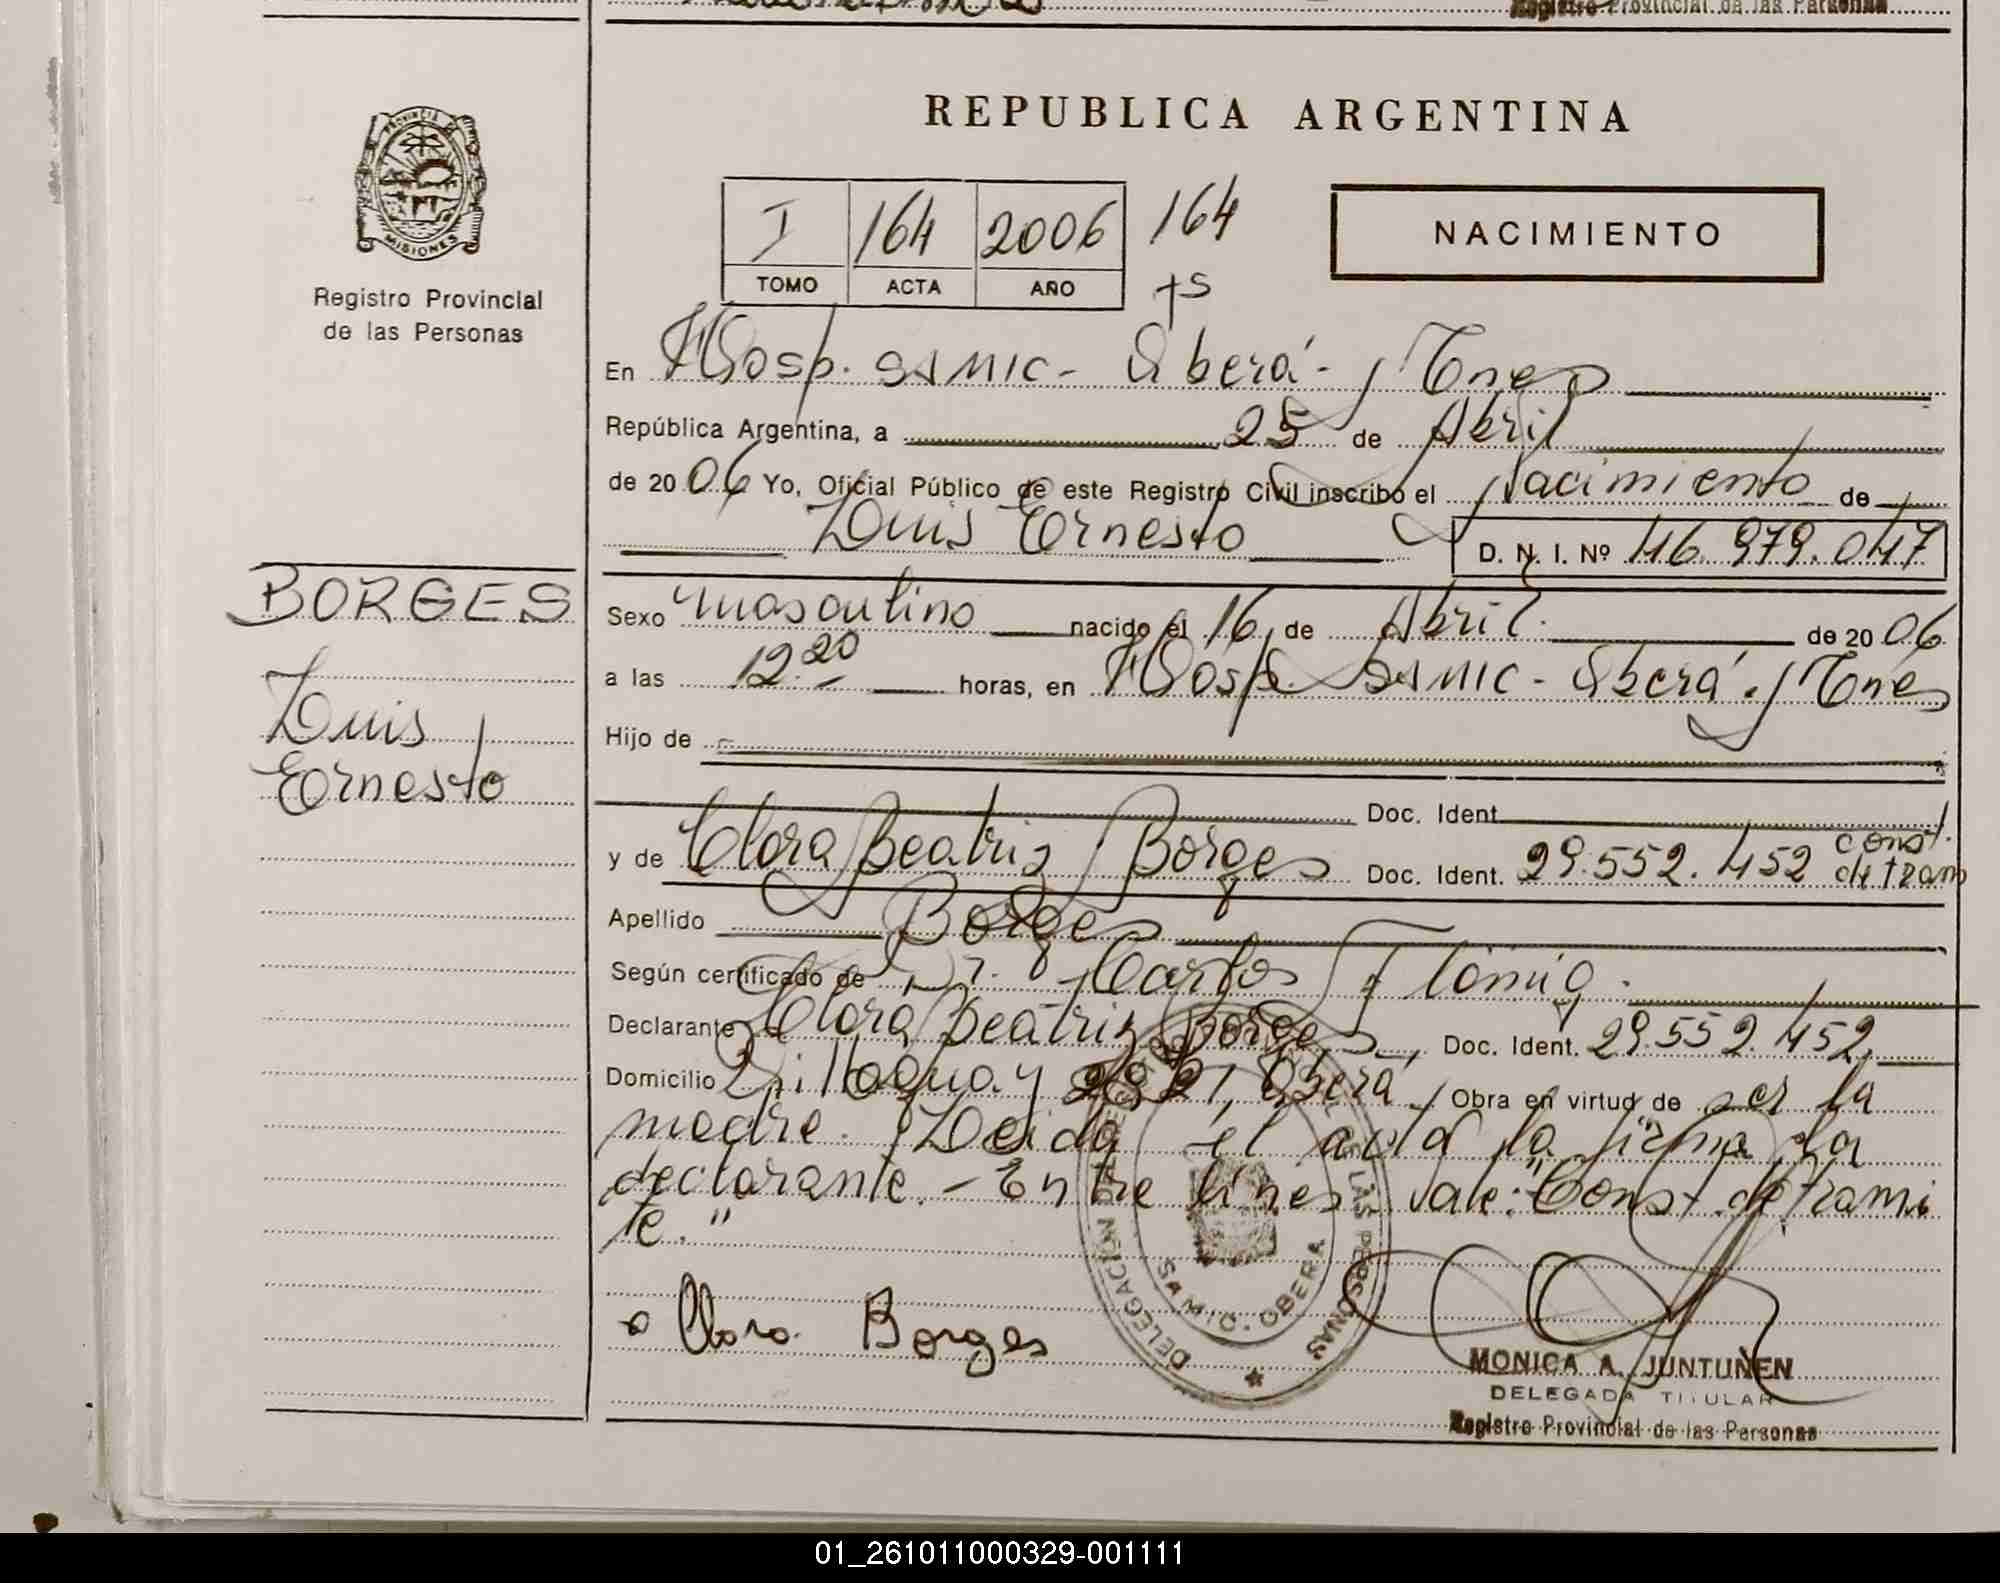 Registro Provincial de las Personas
REPUBLICA ARGENTINA
PROVINCIA DE
MISIONES
Registro Provincial
de las Personas
I 164 2006 164
TOMO ACTA AÑO
NACIMIENTO
fs
En Hosp. SAMIC - Oberá - Mnes
República Argentina, a 25 de Abril
de 2006 Yo, Oficial Público de este Registro Civil inscribo el Nacimiento de
Luis Ernesto D. N. I. Nº 46.979.047
BORGES
Luis
Ernesto
Sexo masculino nacido el 16 de Abril de 2006
a las 12.20 horas, en Hosp. SAMIC - Oberá - Mnes
Hijo de
Doc. Ident.
y de Clara Beatriz Borges Doc. Ident. 29.552.452 const. de tram
Apellido Borges
Según certificado de Dr. Carlos Flömig.
Declarante Clara Beatriz Borges, Doc. Ident. 29.552.452,
Domicilio Oberá. Obra en virtud de ser la
madre. Leida el acta la firma la
declarante. - Entre lines vale: "Const. de trami
te."
Clara Borges
DELEGACIÓN DE LAS PERSONAS
S.A.M.I.C. OBERA
MONICA A. JUNTUNEN
DELEGADA TITULAR
Registro Provincial de las Personas
01_261011000329-001111